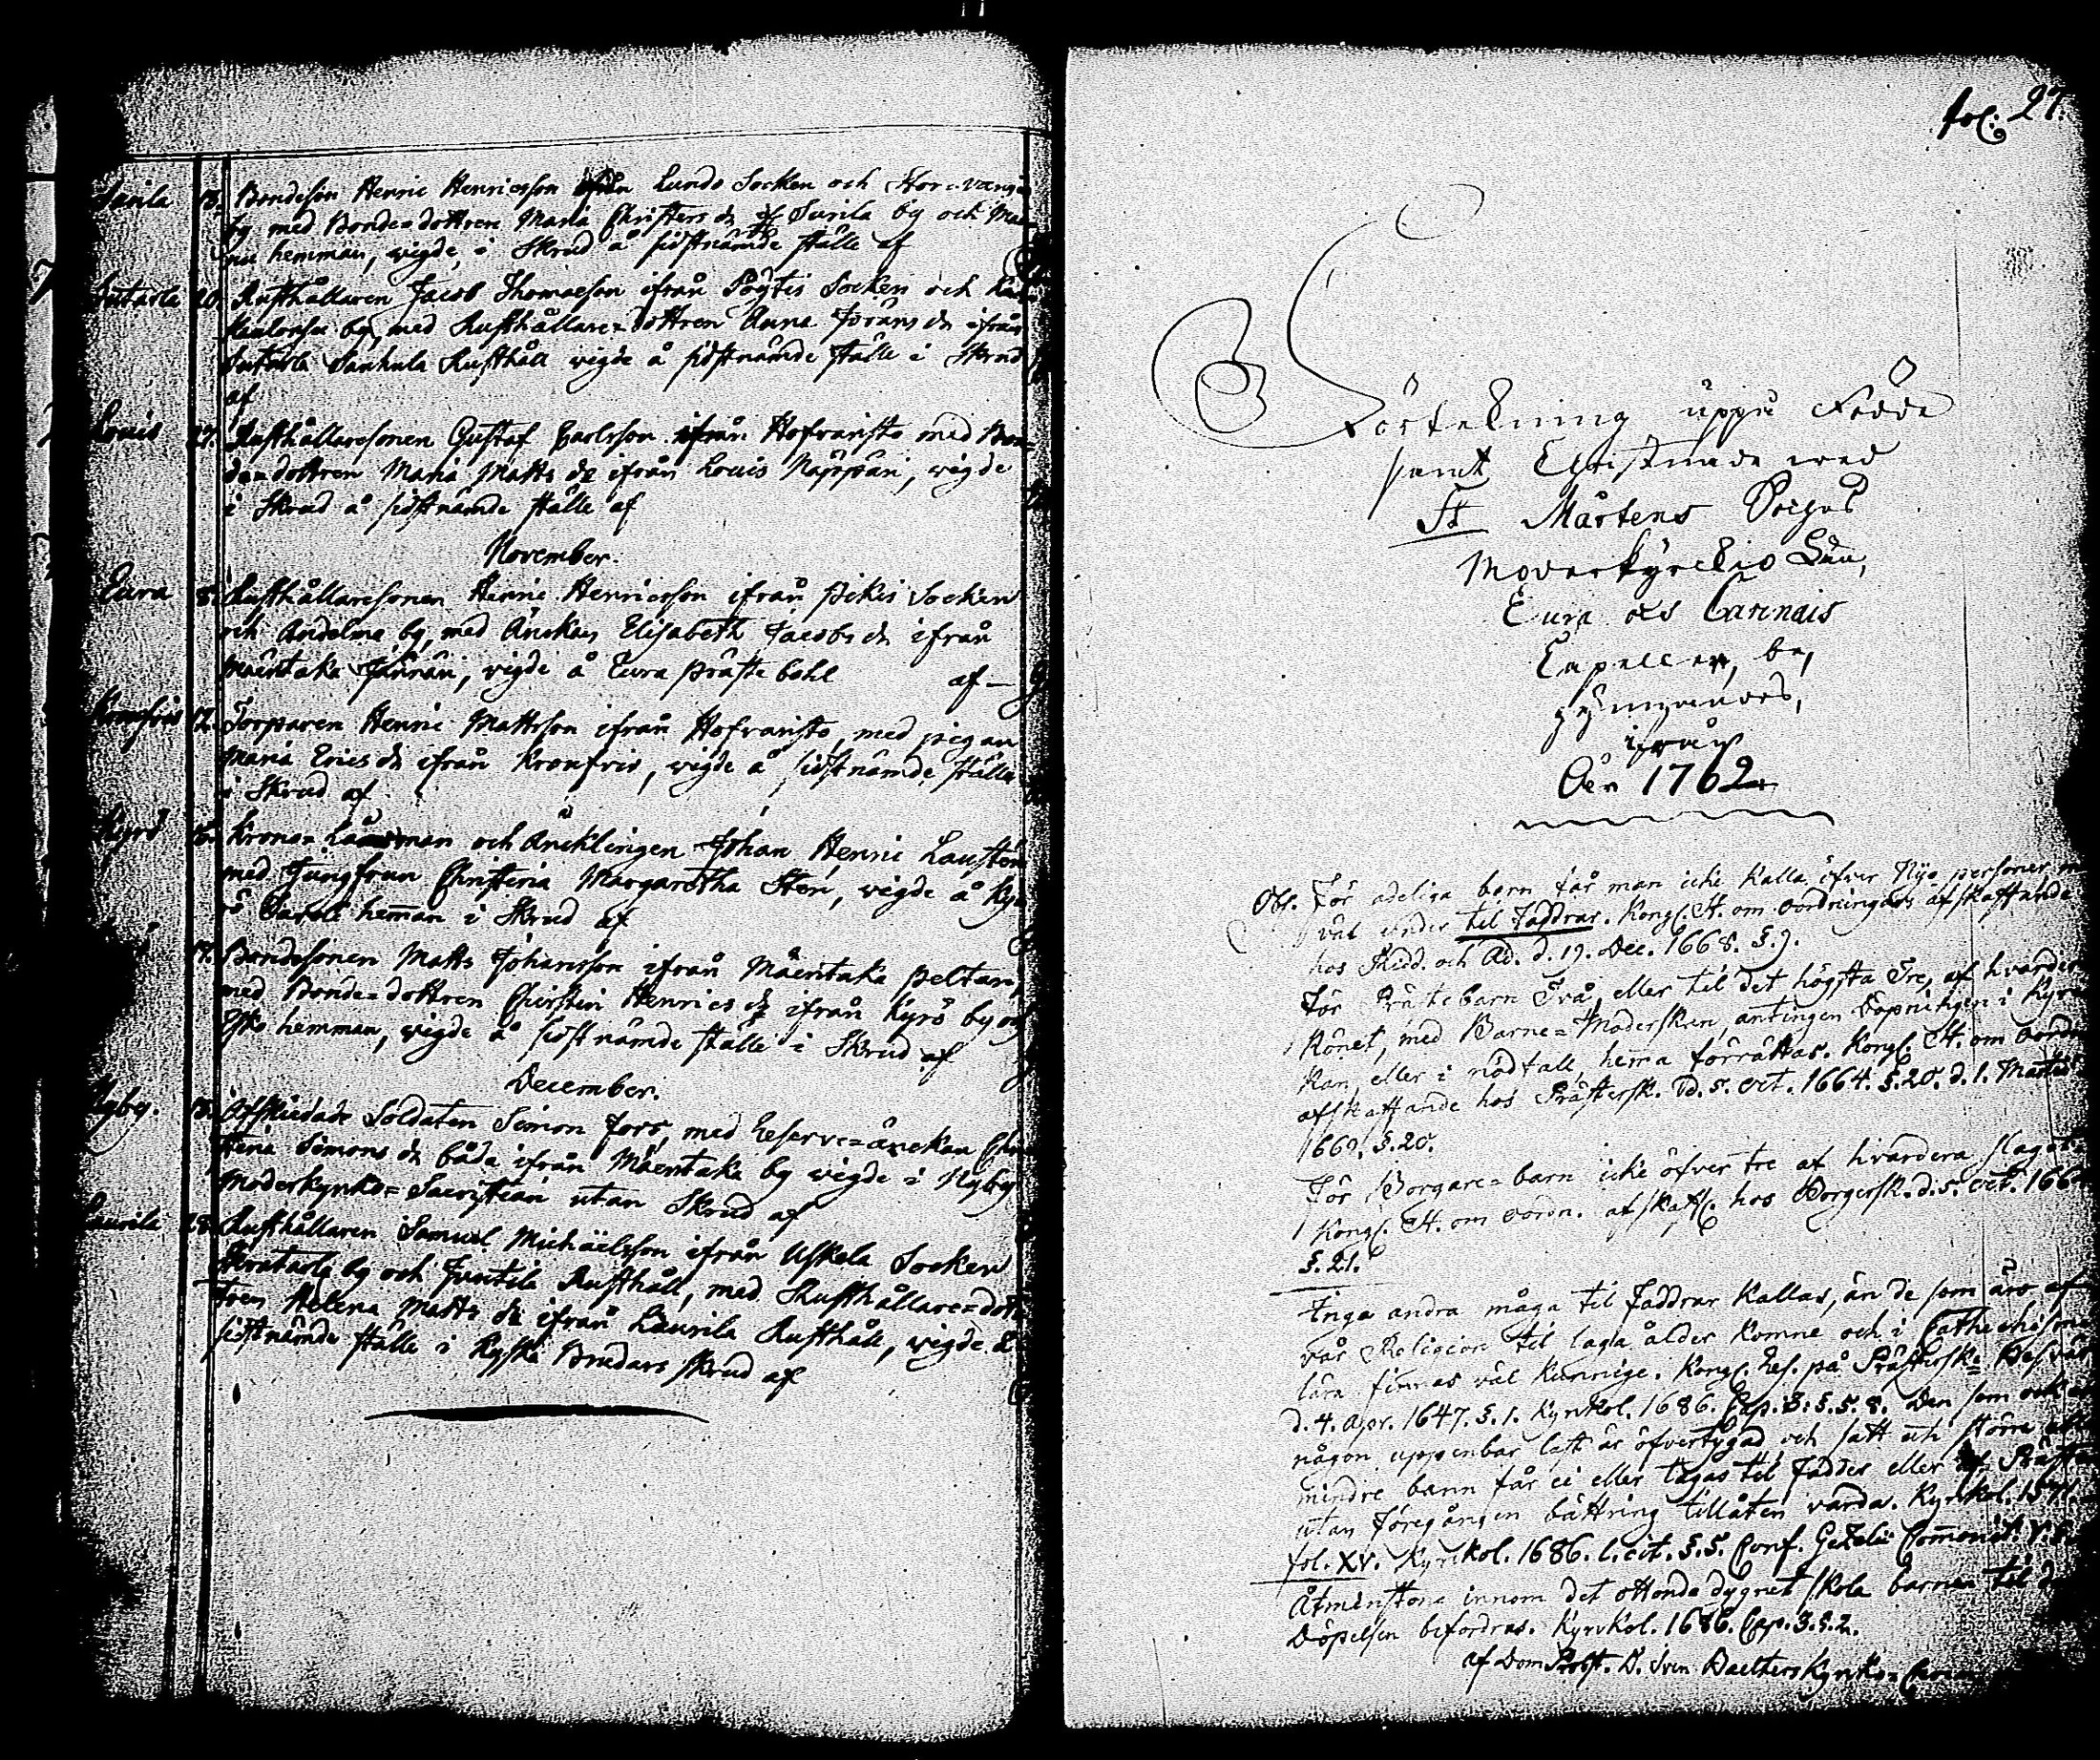 Bondeson Henric Henricsson ifrån Lundo Socken och Storvänge
by med Bonde=dottren Maria Christers dr af Savila by och
hemman, wigde, i Skrud å sidstnämde ställe af
Rusthållaren Jacob Thomaeson ifrån Pöytis Socken och
by med Rusthållare=dottren Anna Jörans dr ifrån
Rusthåll wigde å sidstnämde ställe i Skrud
af
Louis 27. Rusthållaresonen Gustaf Carlsson ifrån Hofvaristo med Bon-
de=dottren Maria Matts dr ifrån Louis Näppäri, wigde
i Skrud å sidstnämde ställe af
November.
Eura 8. Rusthållaresonen Henric Henricsson ifrån Pikis Socken
och Andelma by, med Änckan Elisabeth Jacobs dr ifrån
Mäentaka Jännäri, wigde å Eura Prästebohl af
Kronfris 12. Torparen Henric Mattsson ifrån Hofvaristo, med pigan
Maria Erics dr ifrån Kronfris, wigde å sidstnämde ställe
i Skrud af
Kyrö Krono=Länsman och Äncklingen Johan Henric Lausten
med Jungfrun Christina Margaretha Sten, wigde å
hemman i Skrud af
17. Bondesonen Matts Johansson ifrån Mäentaka Peltari,
med Bonde=dottren Christin Henrics dr ifrån Kyrö by och
Esko hemman, wigde å sidstnämde ställe i Skrud af
December.
Nyby. Afskiedade Soldaten Simon Fors, med Reserve=änckan
Simons dr båda ifrån Mäentaka by wigde i Nyby
Moderkyrkio=Sacristian utan Skrud af
Laurila 28. Rusthållaren Samuel Michäelsson ifrån Uskela Socken
by och Junttila Rusthåll, med Rusthållare=dott-
tren Helena Matts dr ifrån Laurila Rusthåll, wigde å
sidstnämde ställe i Ryske Brudars skrud af
fol. 27.
Förtekning uppå Födde
samt Christnade wed
St Mårtens Sochns
Moderkyrckio Säu,
Eura och Carinais
Capeller, be,
gynnandes,
ifrån
År 1762
Obs. För adeliga barn får man icke kalla öfver Nijo personer
til Faddrar. Kongl. St. om oordningars afskaffande
hos Ridd. och Ad. d. 19. Dec. 1668. §. 9.
För Prästebarn Två, eller til det högsta Tre, af hvardera
Könet, med Barne=Möderskan, antingen Döpningen i Kyr-
kan, eller i nödfall, hema förrättas. Kongl. St. om oordn.
afskaffande hos Prästersk. D. 5. Oct. 1664. §. 20. d. 1. Martii
1669. §. 20.
För Borgare=barn icke öfver tre af hvardera slaget
Kongl. St. om oordn. afskaff. hos Borgersk. d. 5. Oct. 166
§. 21.
Inga andra måga til Faddrar kallas, än de som äro af
vår Religion til laga ålder komne och i Cathechismi
lära finnas väl kunnige. Kongl. Res. på Prästersk= Besvär
d. 4. Apr. 1647. §. 1. Kyrkol. 1686. Cap. 3. §. 5. 8. Den som om
någon uppenbar last är öfvertygad och satt uti större eller
mindre bann får ei eller tagas til Fadder eller af Prästen
utan föregången bättring tillåten varda. Kyrkol. 1571.
fol. XV. Kyrkol. 1686. l. cit. §. 5. Conf. Gezelii Commonit.
Åtminstone innom det ottonde dygnet skola barnen til
Döpelsen befordras. Kyrkol. 1686. Cap. 3. §. 2.
af Dom Probst. D. Sven Baelters Kyrko=